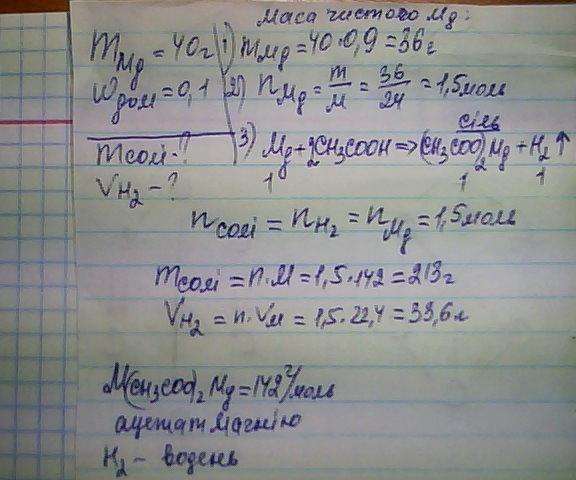 Маса чистого Mg:
m Mg = 40г
1) m Mg = 40·0,9 = 36г
ω дом = 0,1
2) n Mg = m/M = 36/24 = 1,5моль
m солі - ?
3) Mg + 2CH3COOH => (CH3COO)2Mg + H2↑
сіль
V H2 - ?
1 1 1
n солі = n H2 = n Mg = 1,5моль
m солі = n·M = 1,5·142 = 213г
V H2 = n·Vм = 1,5·22,4 = 33,6л
M(CH3COO)2Mg = 142г/моль
ацетат магнію
H2 - водень